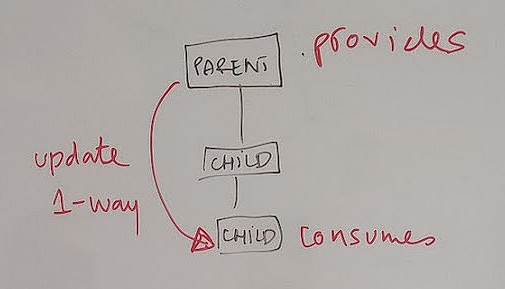 PARENT
.provides
update
1-way
CHILD
CHILD
consumes